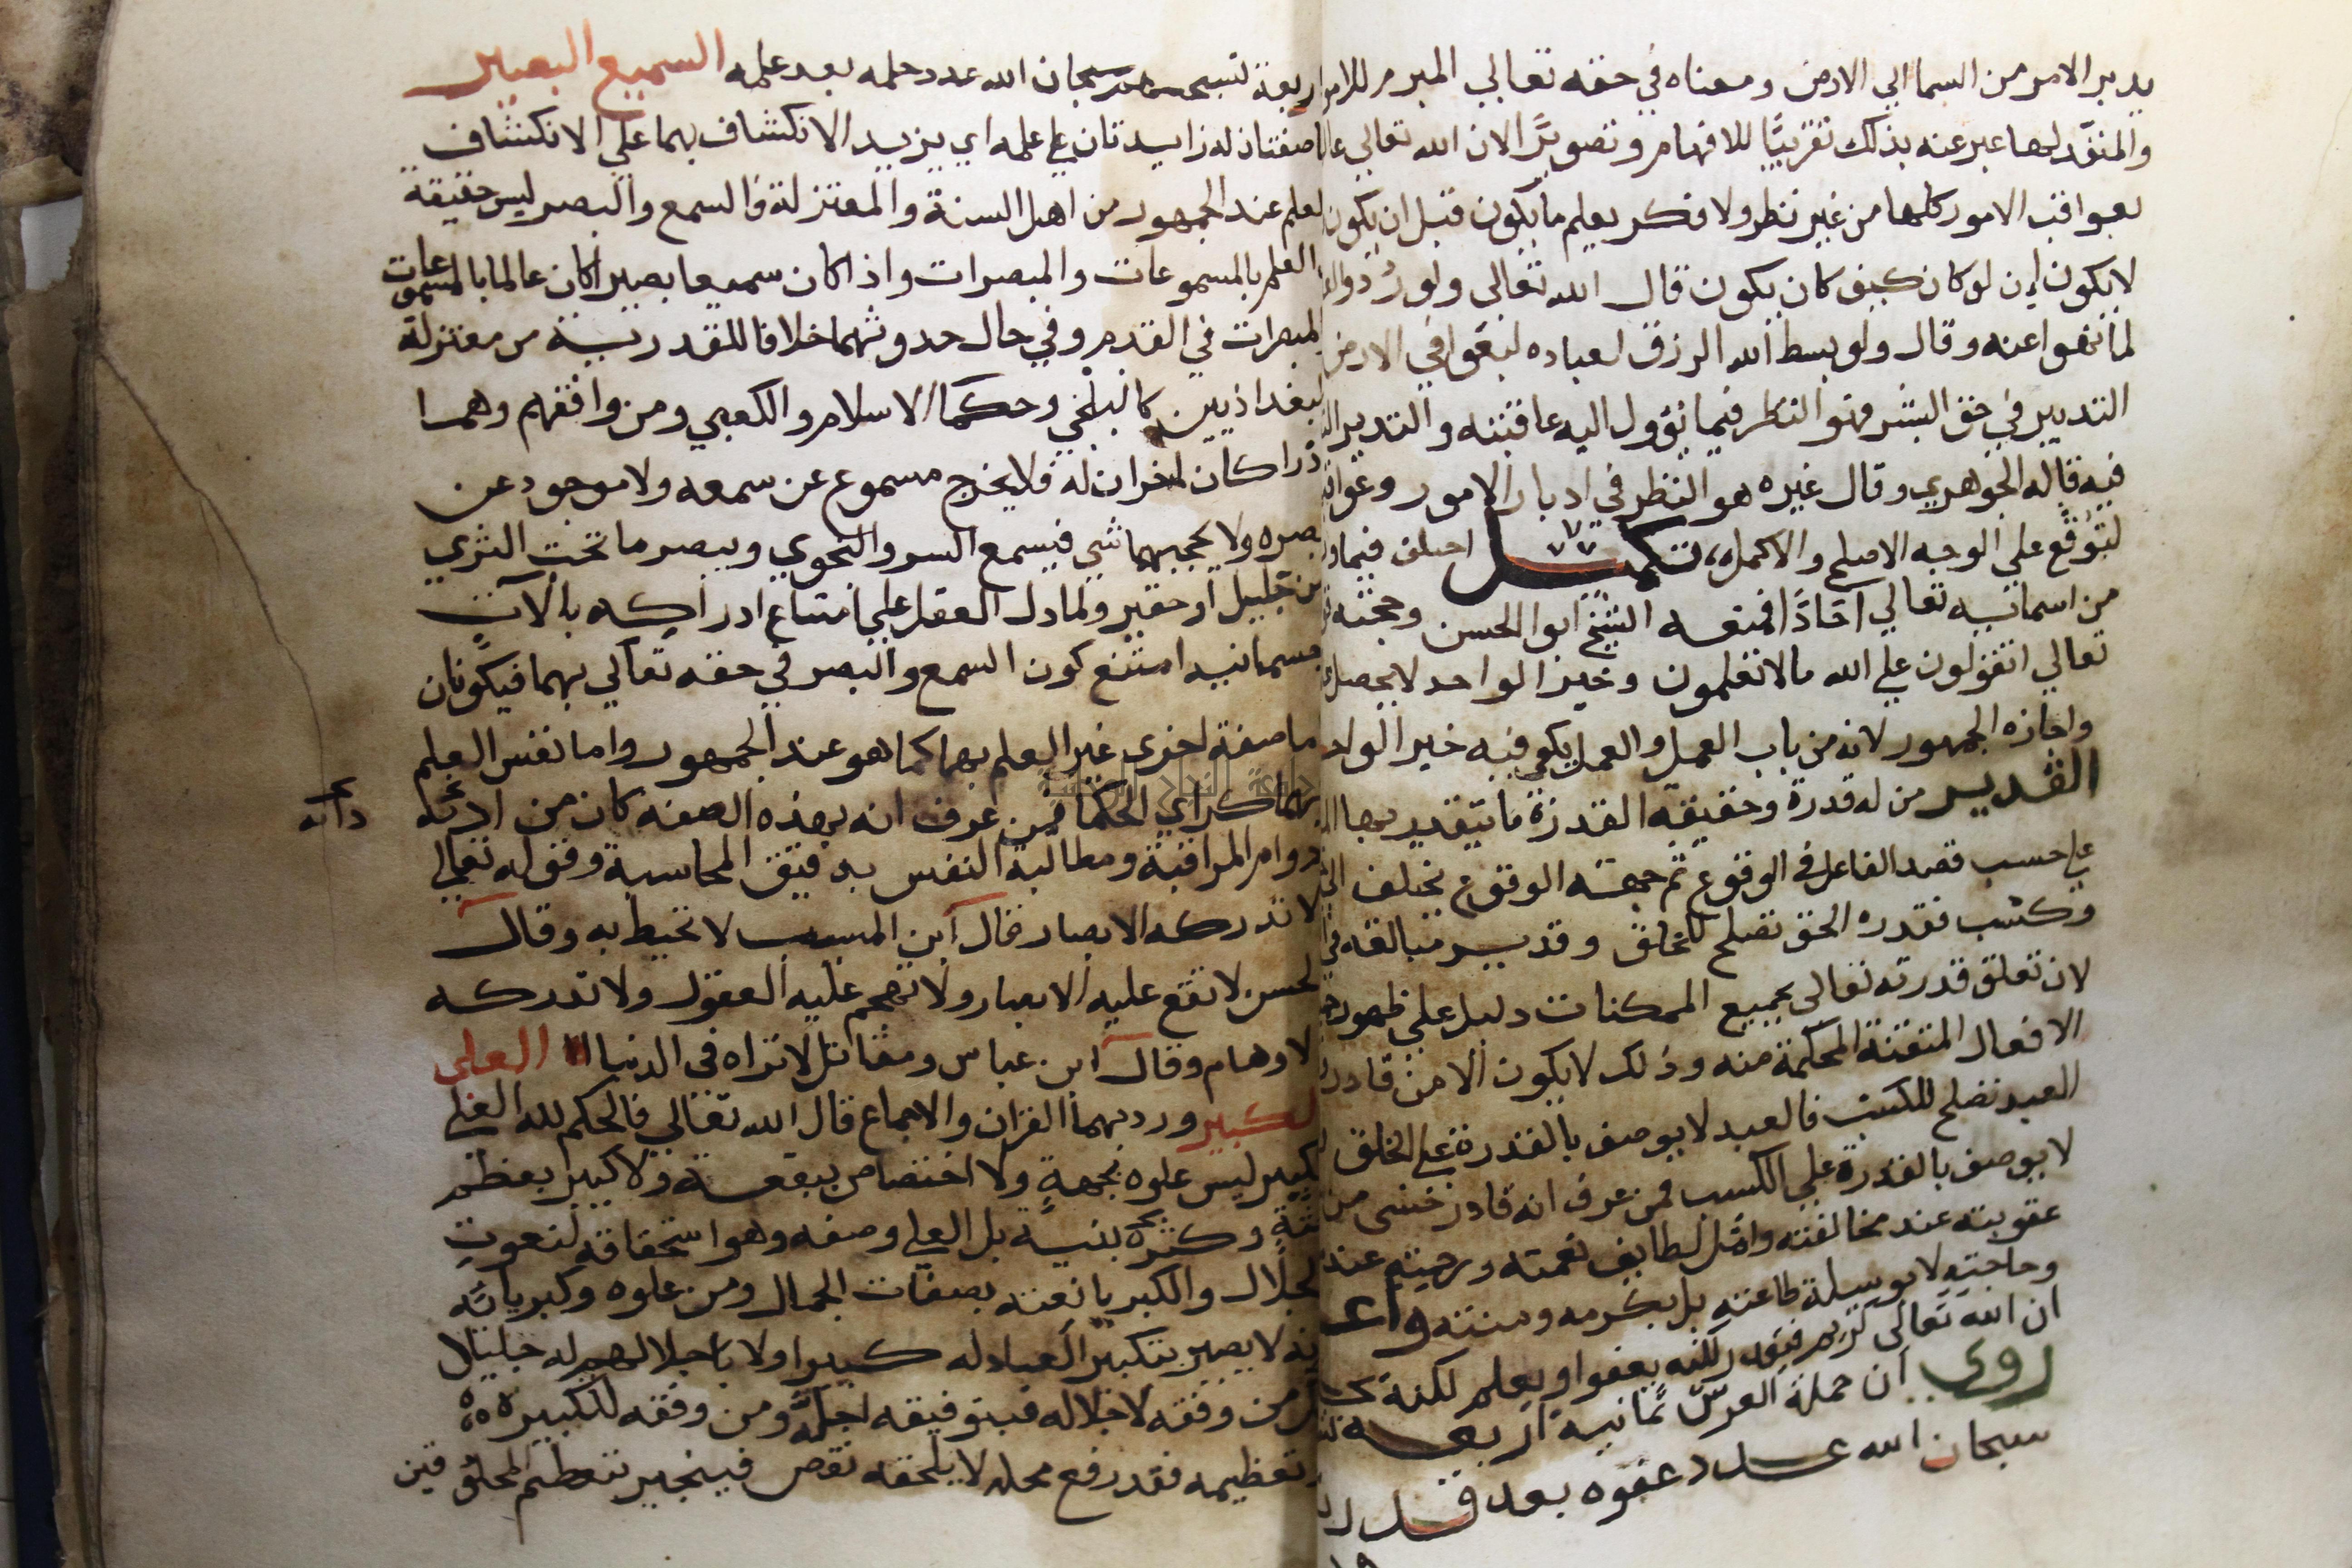 يدبر الامر من السما الي الارض ومعناه في حقه تعالي المبرم للامو
والمنفذ لها عبر عنه بذلك تقريبًا للافهام وتصويرًا لان الله تعالي عا
بعواقب الامور كلها من غير نظر ولا فكر يعلم ما يكون قبل ان يكون
لا يكون ان لو كان كيف كان يكون قال الله تعالي ولو رُدوا
لما نهوا عنه وقال ولو بسط الله الرزق لعباده لبغوا في الارض
التدبير في حق البشر فهو النظر فيما تؤول اليه عاقبته والتدبير
فيه قاله الجوهري وقال غيره هو النظر في ادبار الامور وعوا
لتوقع علي الوجه الاصلح والاكمل، تكميل اختلف فيما
من اسمائه تعالي آحادًا فمنعه الشيخ ابوا الحسن وحجته
تعالي اتقولون علي الله مالا تعلمون وخبر الواحد لا يحصل
واجازه الجمهور لانه من باب العمل والعمل يكفي فيه خبر الواحد
القدير من له قدرة وحقيقة القدرة ما يتقدر بها
علي حسب قصد الفاعل في الوقوع ثم جهة الوقوع تختلف
وكسب فقدره الحق تصلح للخلق وقدير مبالغه في
لان تعلق قدرته تعالي بجميع الممكنات دليل علي ظهور
الافعال المتقنة المحكمة منه وذلك لا يكون الا من قادر
العبد تصلح للكسب فالعبد لا يوصف بالقدرة علي الخلق
لا يوصف بالقدرة علي الكسب فمن عرف انه قادر خشي من
عقوبته عند مخالفته وامل لطايف نعمته ورحمته عند
وحاجته لا بوسيلة طاعته بل بكرمه ومنته واعـ
ان الله تعالى كريم يعفوا ويعلم لكنه
روي ان حملة العرش ثمانية اربعة
سبحان الله عدد عفوه بعد
اربعة تسبح سبحان الله عدد حلمه بعد علمه السميع البصير
صفتان له زايدتان علي علمه اي يزيد الانكشاف بهما علي الانكشاف
لعلم عند الجمهور من اهل السنة والمعتزلة فالسمع والبصر ليس حقيقة
العلم بالمسموعات والمبصرات واذا كان سميعا بصيرا كان عالما بالمسموعات
المبصرات في القدم وفي حال حدوثهما خلافا للقدرية من معتزلة
لبغداذيين كالبلخي وحكما الاسلام والكعبي ومن وافقهم وهما
دراكان له فلا يخرج مسموع عن سمعه ولا موجود عن
بصره ولا يحجبهما شي فيسمع السر والنجوي ويبصر ما تحت الثري
من جليل او حقير ولما دل العقل علي امتناع ادراكه بالآت
جسمانيه امتنع كون السمع والبصر في حقه تعالي بهما فيكونان
صفة اخرى غير العلم بهما كما هو عند الجمهور واما نفس العلم
بهما كراي الحكما فمن عرف انه بهذه الصفه كان من ادبه
دابه
دوام المراقبة ومطالبة النفس بدقيق المحاسبة وقوله تعالي
لا تدركه الابصار فقال ابن المسيب لا تحيط به وقال
لحسن لا تقع عليه الابصار ولا تهجم عليه العقول ولا تدركه
لاوهام وقال ابن عباس ومقاتل لا تراه في الدنيا العلي
لكبير ورد بهما القران والاجماع قال الله تعالي فالحكم لله العلي
لكبير ليس علوه بجهةٍ ولا اختصاص ببقعة ولا كبير بعظم
جثةٍ وكثرة بنية بل العلي وصفه وهو استحقاقه لنعوت
لجلال والكبريا نعته بصفات الجمال ومن علوه وكبريائه
نه لا يصير بتكبير العباد له كبيرا ولا باجلالهم له جليلا
من وفقه لاجلاله فبتوفيقه اجله ومن وفقه لتكبيره
وتعظيمه فقد رفع محله لا يلحقه نقص فينجبر بتعظيم المخلوقين